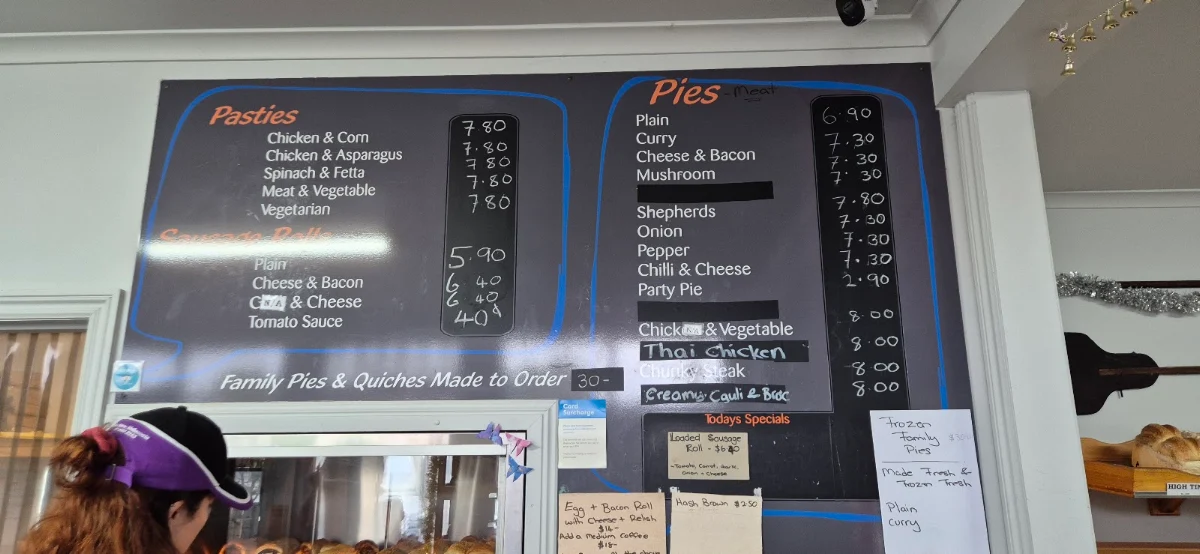 Pasties
Chicken & Corn 7.80
Chicken & Asparagus 7.80
Spinach & Fetta 7.80
Meat & Vegetable 7.80
Vegetarian 7.80
Sausage Rolls
Plain 5.90
Cheese & Bacon 6.40
& Cheese 6.40
Tomato Sauce 40¢
Family Pies & Quiches Made to Order 30-
Pies - Meat
Plain 6.90
Curry 7.30
Cheese & Bacon 7.30
Mushroom 7.30
Shepherds 7.80
Onion 7.30
Pepper 7.30
Chilli & Cheese 7.30
Party Pie 2.90
Chicken & Vegetable 8.00
Thai Chicken 8.00
Chunky Steak 8.00
Creamy Cauli & Broc 8.00
Todays Specials
Loaded Sausage
Roll - $6.40
Onion + Cheese
Card
Surcharge
Egg + Bacon Roll
with Cheese + Relish
$14-
Add a Medium Coffee
$18-
Hash Brown $2.50
Frozen
Family
Pies
Made Fresh &
Frozen Fresh
Plain
Curry
HIGH TIN